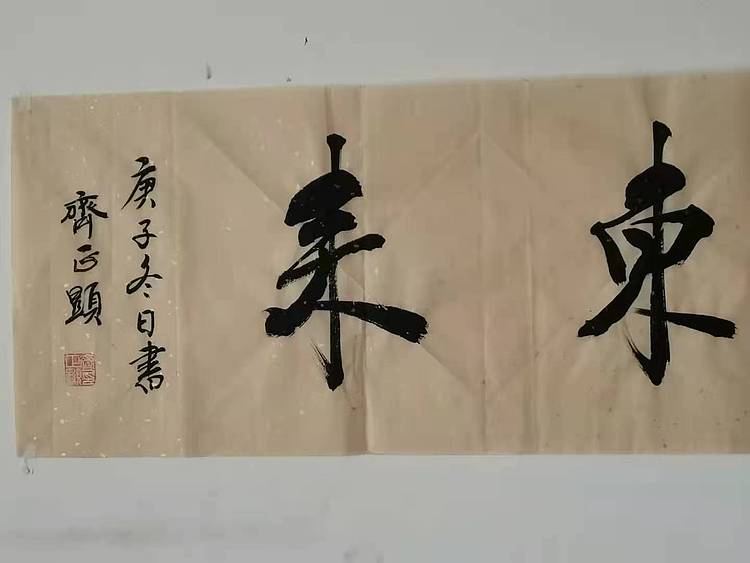 東来
庚子冬日書
齊正顕